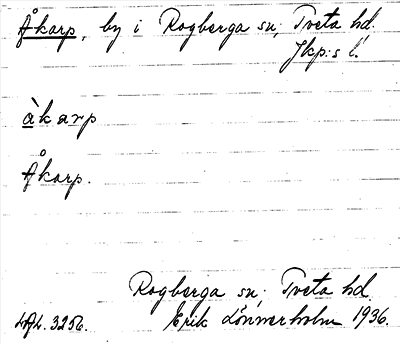 Åkarp, by i Rogberga sn, Tveta hd.
Jkp:s l.
àkarp
Åkarp.
Rogberga sn, Tveta hd.
LAL. 3256. Erik Lönnerholm 1936.